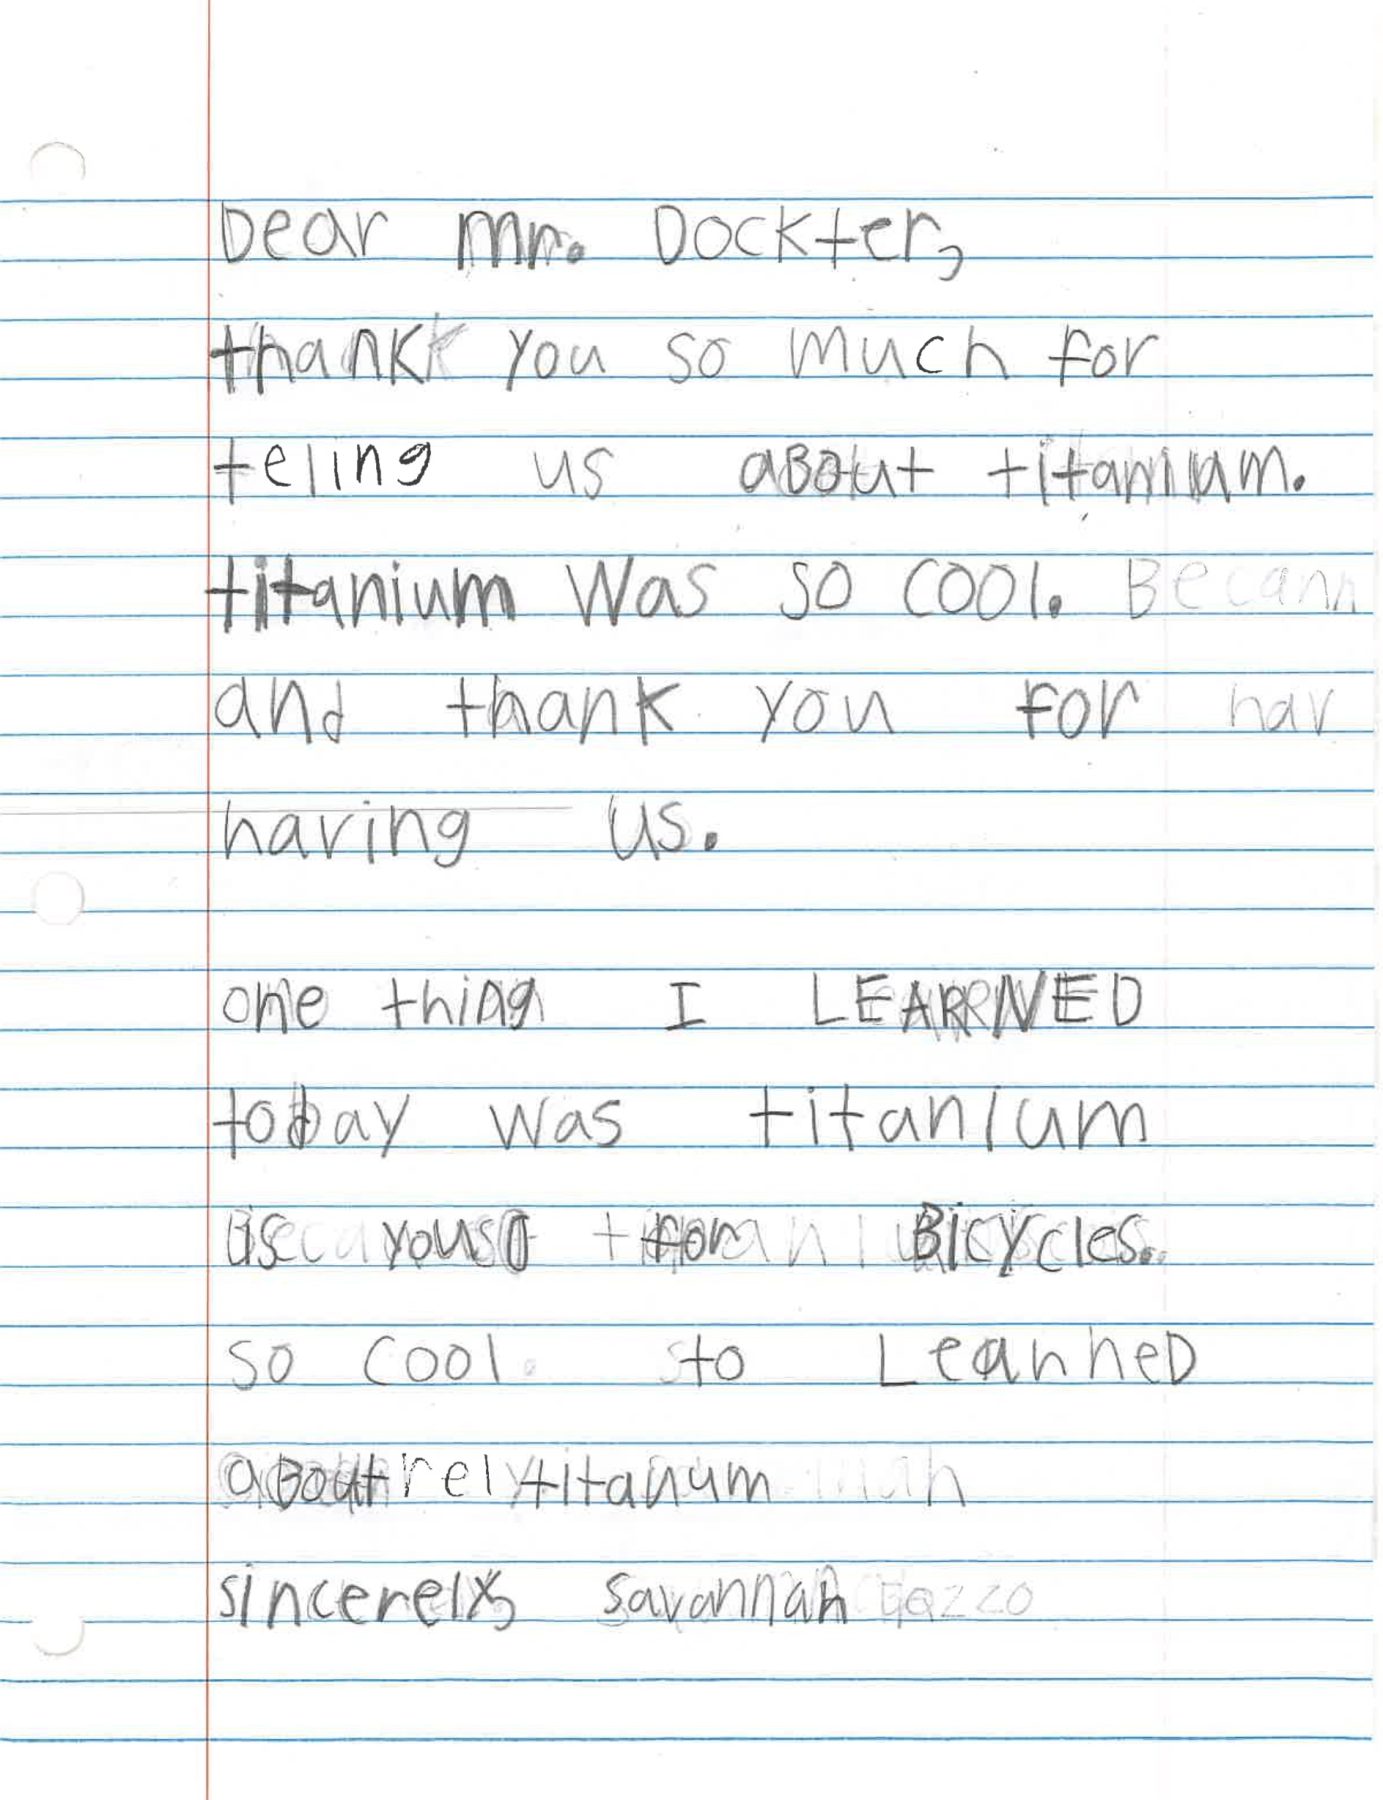 Dear Mr. Dockter,
thank you so much for
teling us aBout titanium.
titanium was so cool.
and thank you for
having us.
one thing I LEARNED
today was titanium
is yousd for Bicycles.
so cool to LearneD
aBout titanum
sincerely, savannah